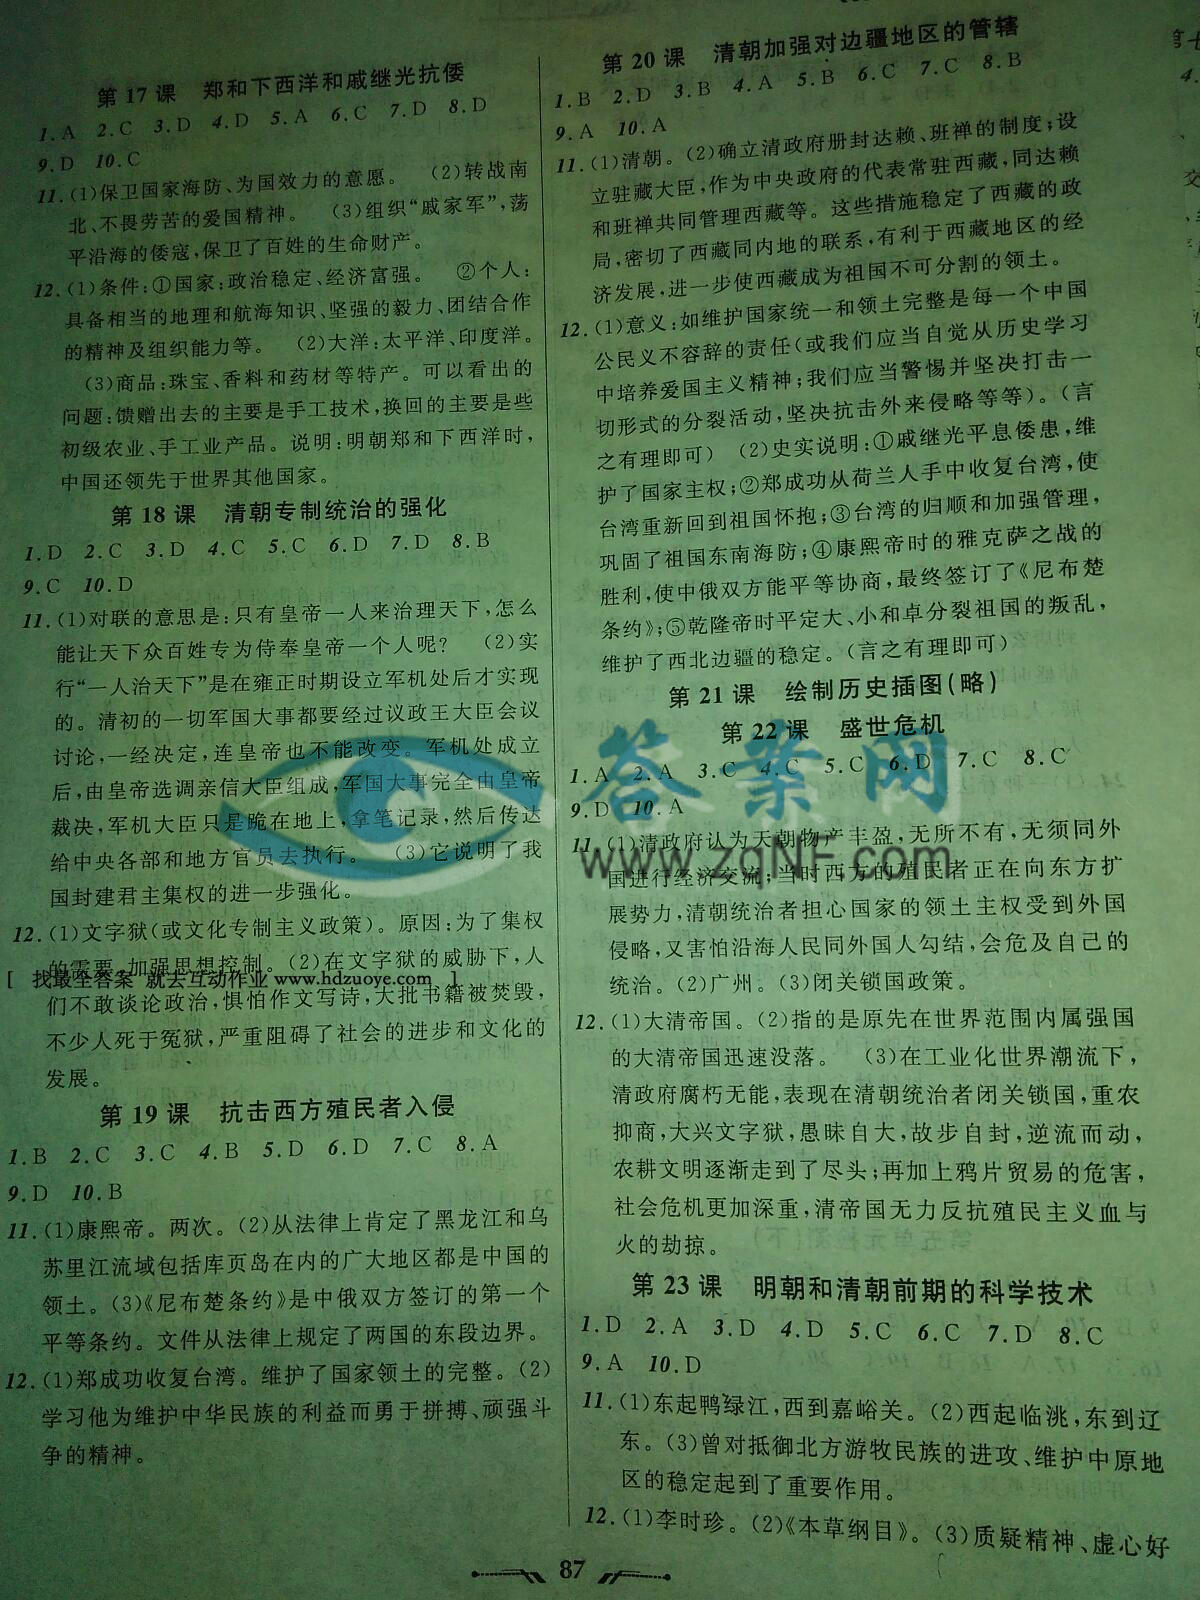 第 17 课　郑和下西洋和戚继光抗倭
1.A 2.C 3.D 4.D 5.A 6.C 7.D 8.D
9.D 10.C
11.(1)保卫国家海防、为国效力的意愿。　(2)转战南
北、不畏劳苦的爱国精神。　(3)组织“戚家军”,荡
平沿海的倭寇,保卫了百姓的生命财产。
12.(1)条件:①国家:政治稳定、经济富强。　②个人:
具备相当的地理和航海知识、坚强的毅力、团结合作
的精神及组织能力等。　(2)大洋:太平洋、印度洋。
(3)商品:珠宝、香料和药材等特产。可以看出的
问题:馈赠出去的主要是手工技术,换回的主要是些
初级农业、手工业产品。说明:明朝郑和下西洋时,
中国还领先于世界其他国家。
第 18 课　清朝专制统治的强化
1.D 2.C 3.D 4.C 5.C 6.D 7.D 8.B
9.C 10.D
11.(1)对联的意思是:只有皇帝一人来治理天下,怎么
能让天下众百姓专为侍奉皇帝一个人呢?　(2)实
行“一人治天下”是在雍正时期设立军机处后才实现
的。清初的一切军国大事都要经过议政王大臣会议
讨论,一经决定,连皇帝也不能改变。军机处成立
后,由皇帝选调亲信大臣组成,军国大事完全由皇帝
裁决,军机大臣只是跪在地上,拿笔记录,然后传达
给中央各部和地方官员去执行。　(3)它说明了我
国封建君主集权的进一步强化。
12.(1)文字狱(或文化专制主义政策)。原因:为了集权
的需要,加强思想控制。(2)在文字狱的威胁下,人
[ 找最全答案 就去互动作业 www.hdzuoye.com ]
们不敢谈论政治,惧怕作文写诗,大批书籍被焚毁,
不少人死于冤狱,严重阻碍了社会的进步和文化的
发展。
第 19 课　抗击西方殖民者入侵
1.B 2.C 3.C 4.B 5.D 6.D 7.C 8.A
9.D 10.B
11.(1)康熙帝。两次。(2)从法律上肯定了黑龙江和乌
苏里江流域包括库页岛在内的广大地区都是中国的
领土。(3)《尼布楚条约》是中俄双方签订的第一个
平等条约。文件从法律上规定了两国的东段边界。
12.(1)郑成功收复台湾。维护了国家领土的完整。(2)
学习他为维护中华民族的利益而勇于拼搏、顽强斗
争的精神。
第 20 课　清朝加强对边疆地区的管辖
1.B 2.D 3.B 4.A 5.B 6.C 7.C 8.B
9.A 10.A
11.(1)清朝。(2)确立清政府册封达赖、班禅的制度;设
立驻藏大臣,作为中央政府的代表常驻西藏,同达赖
和班禅共同管理西藏等。这些措施稳定了西藏的政
局,密切了西藏同内地的联系,有利于西藏地区的经
济发展,进一步使西藏成为祖国不可分割的领土。
12.(1)意义:如维护国家统一和领土完整是每一个中国
公民义不容辞的责任(或我们应当自觉从历史学习
中培养爱国主义精神;我们应当警惕并坚决打击一
切形式的分裂活动,坚决抗击外来侵略等等)。(言
之有理即可)　(2)史实说明:①戚继光平息倭患,维
护了国家主权;②郑成功从荷兰人手中收复台湾,使
台湾重新回到祖国怀抱;③台湾的归顺和加强管理,
巩固了祖国东南海防;④康熙帝时的雅克萨之战的
胜利,使中俄双方能平等协商,最终签订了《尼布楚
条约》;⑤乾隆帝时平定大、小和卓分裂祖国的叛乱,
维护了西北边疆的稳定。(言之有理即可)
第 21 课　绘制历史插图(略)
第 22 课　盛世危机
1.A 2.A 3.C 4.C 5.C 6.D 7.C 8.C
9.D 10.A
答案网
www.zqNF.com
11.(1)清政府认为天朝物产丰盈,无所不有,无须同外
国进行经济交流;当时西方的殖民者正在向东方扩
展势力,清朝统治者担心国家的领土主权受到外国
侵略,又害怕沿海人民同外国人勾结,会危及自己的
统治。(2)广州。(3)闭关锁国政策。
12.(1)大清帝国。(2)指的是原先在世界范围内属强国
的大清帝国迅速没落。　(3)在工业化世界潮流下,
清政府腐朽无能,表现在清朝统治者闭关锁国,重农
抑商,大兴文字狱,愚昧自大,故步自封,逆流而动,
农耕文明逐渐走到了尽头;再加上鸦片贸易的危害,
社会危机更加深重,清帝国无力反抗殖民主义血与
火的劫掠。
第 23 课　明朝和清朝前期的科学技术
1.D 2.A 3.D 4.D 5.C 6.C 7.D 8.C
9.A 10.D
11.(1)东起鸭绿江,西到嘉峪关。(2)西起临洮,东到辽
东。(3)曾对抵御北方游牧民族的进攻、维护中原地
区的稳定起到了重要作用。
12.(1)李时珍。(2)《本草纲目》。(3)质疑精神、虚心好
87